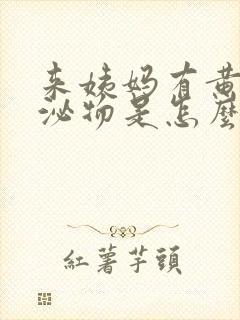 来姨妈有黄
泌物是怎麼
紅薯芋頭